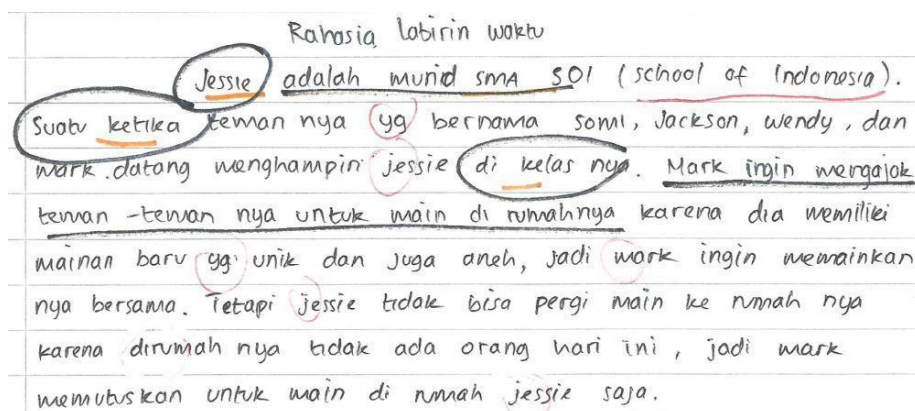 Rahasia Labirin waktu
Jessie adalah murid SMA SOI (school of Indonesia).
Suatu ketika teman nya yg bernama somi, Jackson, wendy, dan
mark datang menghampiri jessie di kelas nya. Mark ingin mengajak
teman-teman nya untuk main di rumahnya karena dia memiliki
mainan baru yg unik dan juga aneh, jadi mark ingin memainkan
nya bersama. Tetapi jessie tidak bisa pergi main ke rumah nya
karena dirumah nya tidak ada orang hari ini, jadi mark
memutuskan untuk main di rumah jessie saja.